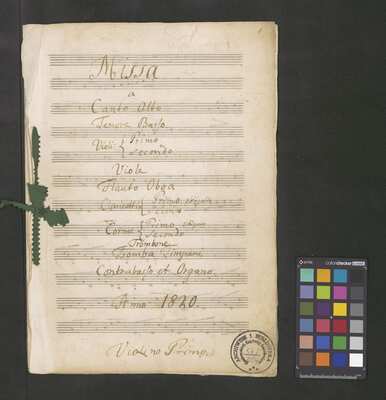 Missa
a
Canto Alto
Tenore Basso
Violi Primo
Secondo
Viole
Flauto Obga
Clarinetti Primo
Secondo
Cornui Primo
Secondo
Trombone
Tromba Timpani
Contrabasso et Organo
Anno 1820.
Violino Primo
colorchecker